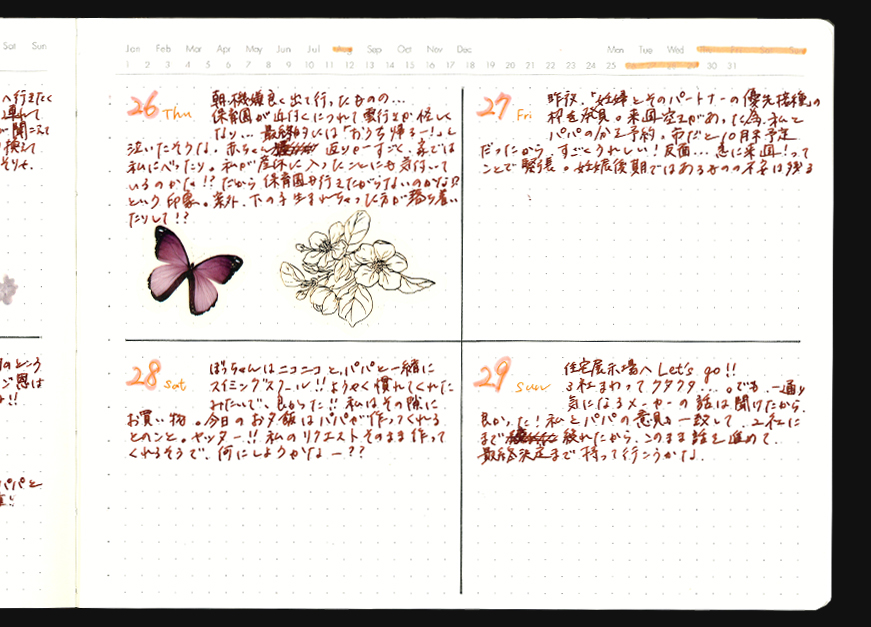 Sat Sun
Jan Feb Mar Apr May Jun Jul Aug Sep Oct Nov Dec Mon Tue Wed Thu Fri Sat Sun
1 2 3 4 5 6 7 8 9 10 11 12 13 14 15 16 17 18 19 20 21 22 23 24 25 26 27 28 29 30 31
へ行きたく
26 Thu
朝、機嫌良く出て行ったものの…
保育園が近付くにつれて雲行きが怪しく
なり… 最終的には「おうち帰るー!」と
泣いたそうな。赤ちゃん 返りかすごく、家では
私にべったり。私が産休に入ったことにも気付いて
いるのかな!? だから保育園も行きたがらないのかな?
という印象。案外、下の子生まれちゃった方が落ち着い
たりして!?
27 Fri
昨夜、「妊婦とそのパートナーの優先接種」の
枠を発見。来週空きがあった為、私と
パパの分を予約。市だと10月末予定
だったから、すごくうれしい!反面…急に来週!って
ことで緊張。妊娠後期ではあるものの不安は残る
28 Sat
ぼっちゃんはニコニコと、パパと一緒に
スイミングスクール!! ようやく慣れてくれた
みたいで、良かった!! 私はその隙に
お買い物。今日のお夕飯はパパが作ってくれる
とのこと。ヤッター!! 私のリクエストそのまま作って
くれるそうで、何にしようかなー??
29 Sun
住宅展示場へ Let's go!!
3社まわってクタクタ…。でも、一通り
気になるメーカーの話は聞けたから、
良かった!私とパパの意見も一致して、2社に
まで 絞れたから、このまま話を進めて、
最終決定まで持って行こうかな。
パパと